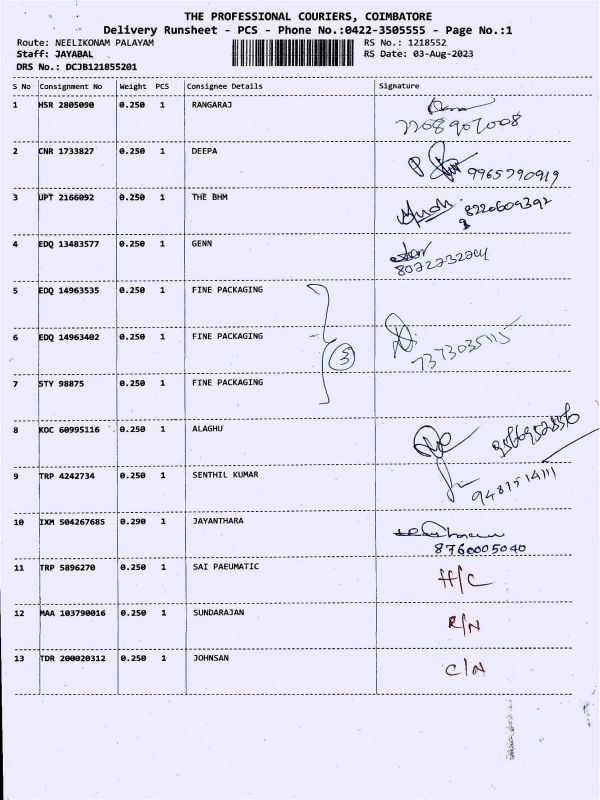 THE PROFESSIONAL COURIERS, COIMBATORE
Delivery Runsheet - PCS - Phone No.:0422-3505555 - Page No.:1
Route: NEELIKONAM PALAYAM RS No.: 1218552
Staff: JAYABAL RS Date: 03-Aug-2023
DRS No.: DCJB121855201
S No Consignment No Weight PCS Consignee Details Signature
1 HSR 2805090 0.250 1 RANGARAJ
2 CNR 1733827 0.250 1 DEEPA
9965790919
3 UPT 2166092 0.250 1 THE BHM
8220609392
4 EDQ 13483577 0.250 1 GENN
5 EDQ 14963535 0.250 1 FINE PACKAGING
6 EDQ 14963402 0.250 1 FINE PACKAGING
3 7373035115
7 STY 98875 0.250 1 FINE PACKAGING
8 KOC 60995116 0.250 1 ALAGHU
9 TRP 4242734 0.250 1 SENTHIL KUMAR
10 IXM 504267685 0.290 1 JAYANTHARA
8760005040
11 TRP 5896270 0.250 1 SAI PAEUMATIC H/C
12 MAA 103790016 0.250 1 SUNDARAJAN R/N
13 TDR 200020312 0.250 1 JOHNSAN C/N